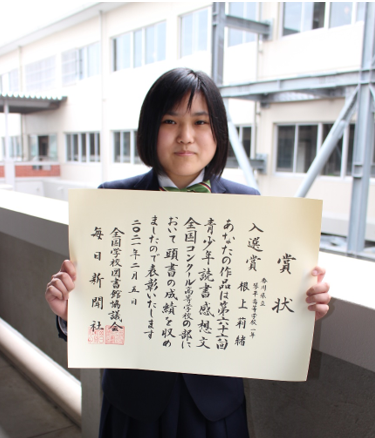 賞状
入選賞
香川県立
琴平高等学校一年
根上莉緒
あなたの作品は第六十六回
青少年読書感想文
全国コンクール高等学校の部に
おいて頭書の成績を収め
ましたので表彰いたします
二〇二一年二月五日
全国学校図書館協議会
毎日新聞社